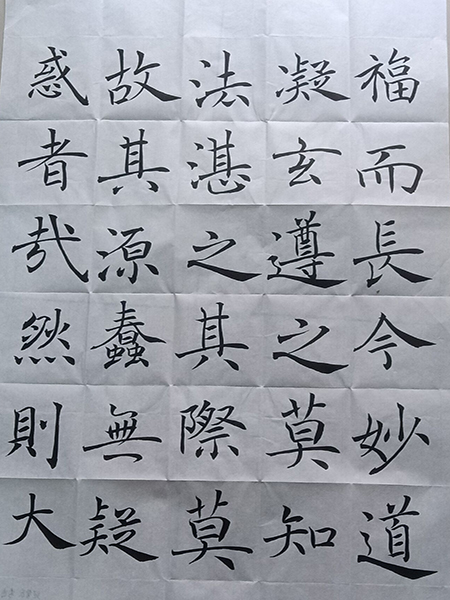 福而長今妙道
凝玄遵之莫知
法湛之其際莫
故其源蠢無疑
惑者哉然則大